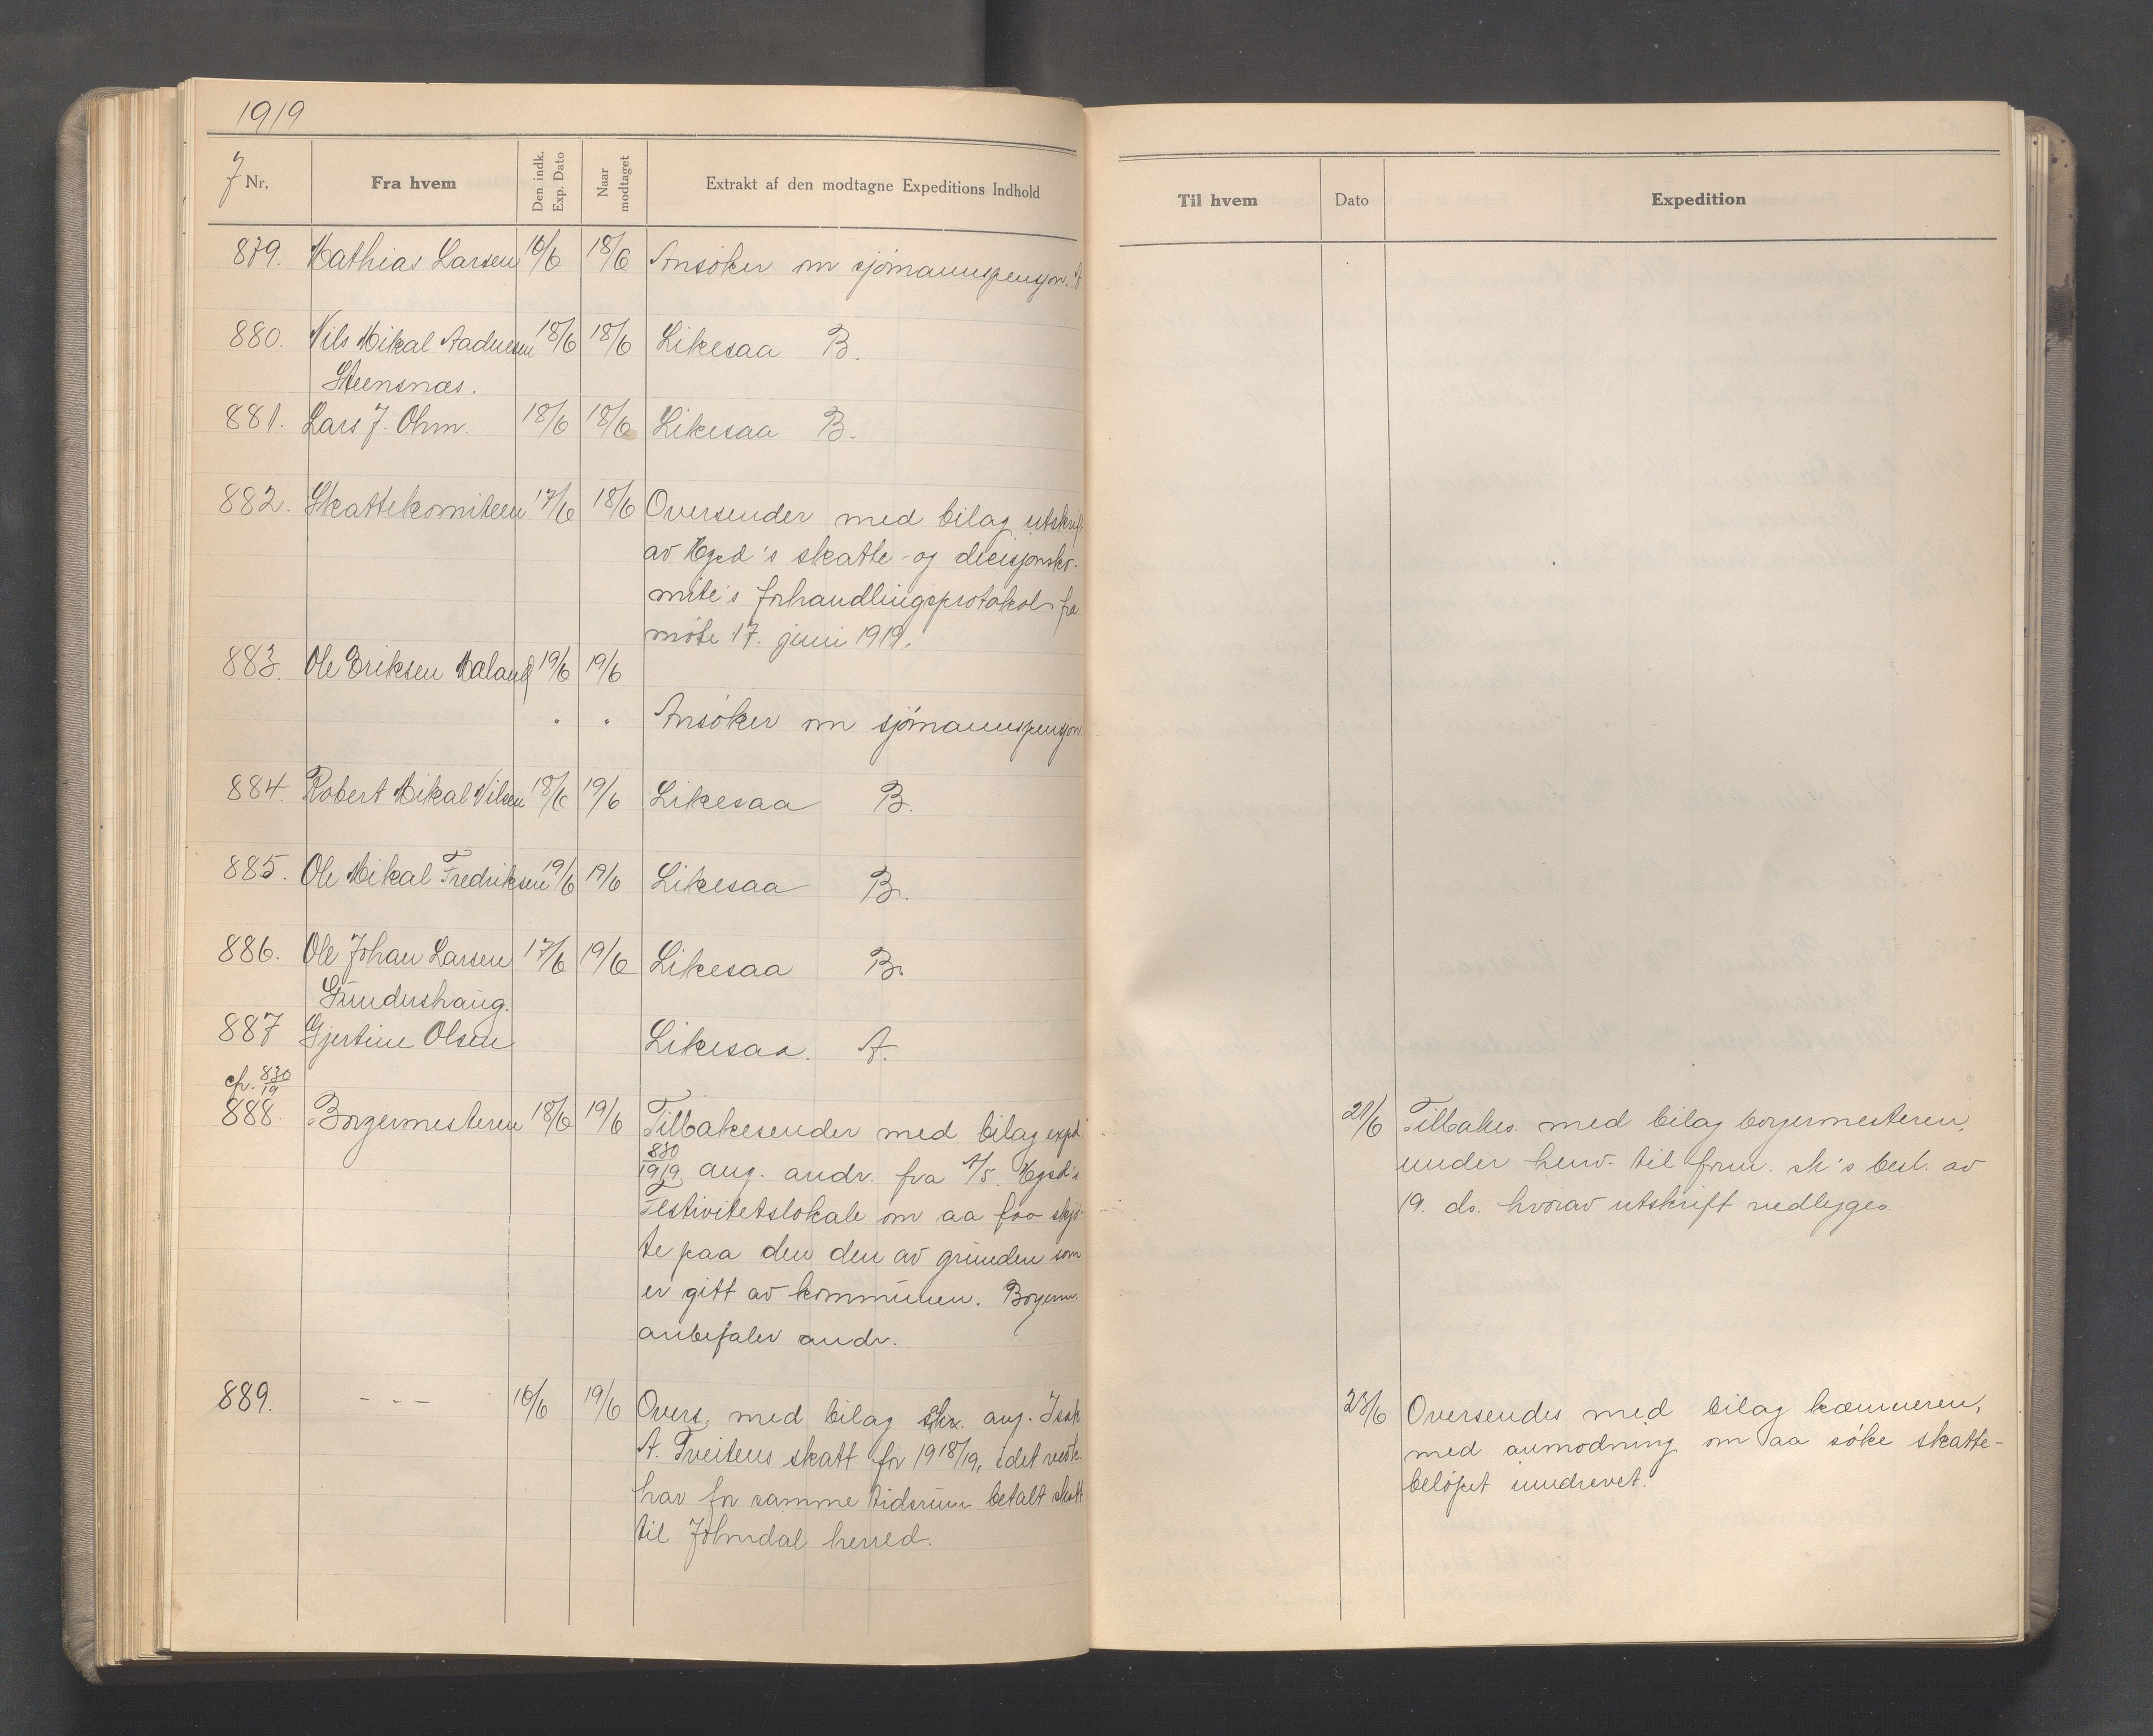 1919
J Nr. Fra hvem Den indk. Exp. Dato Naar modtaget Extrakt af den modtagne Expeditions Indhold
879. Mathias Larsen 16/6 18/6 Ansøker om sjømannspensjon. A
880. Nils Mikal Aadnesen 18/6 18/6 Likesaa B.
Steensnæs.
881. Lars J. Ohm. 18/6 18/6 Likesaa B.
882. Skattekomiteen 17/6 18/6 Oversender med bilag utskrift
av Hgsd's skatte- og decisjonsko-
mite's forhandlingsprotokol fra
møte 17. juni 1919.
883. Ole Eriksen Maland 19/6 19/6
" " Ansøker om sjømannspensjon
884. Robert Mikal Nilsen 18/6 19/6 Likesaa B.
885. Ole Mikal Fredriksen 19/6 19/6 Likesaa B.
886. Ole Johan Larsen 17/6 19/6 Likesaa B.
Gundershaug.
887 Gjertine Olsen Likesaa. A.
cfr. 830/19
888. Borgermesteren 18/6 19/6 Tilbakesender med bilag expd.
830/1919 ang. andr. fra 1/5. Hgsd's
Festivitetslokale om aa faa skjø-
te paa den den av grunden som
er gitt av kommunen. Borgerm.
anbefaler andr.
889. - - - 16/6 19/6 Overs. med bilag skr. ang. Isak
A. Tveitens skatt for 1918/19, idet vedk.
har for samme tidsrum betalt skatt
til Jølmdal herred.
Til hvem Dato Expedition
21/6 Tilbakes. med bilag borgermesteren,
under henv. til form. sk's besl. av
19. ds. hvorav utskrift vedlegges.
23/6 Oversendes med bilag kæmneren,
med anmodning om aa søke skatte-
beløpet inndrevet.